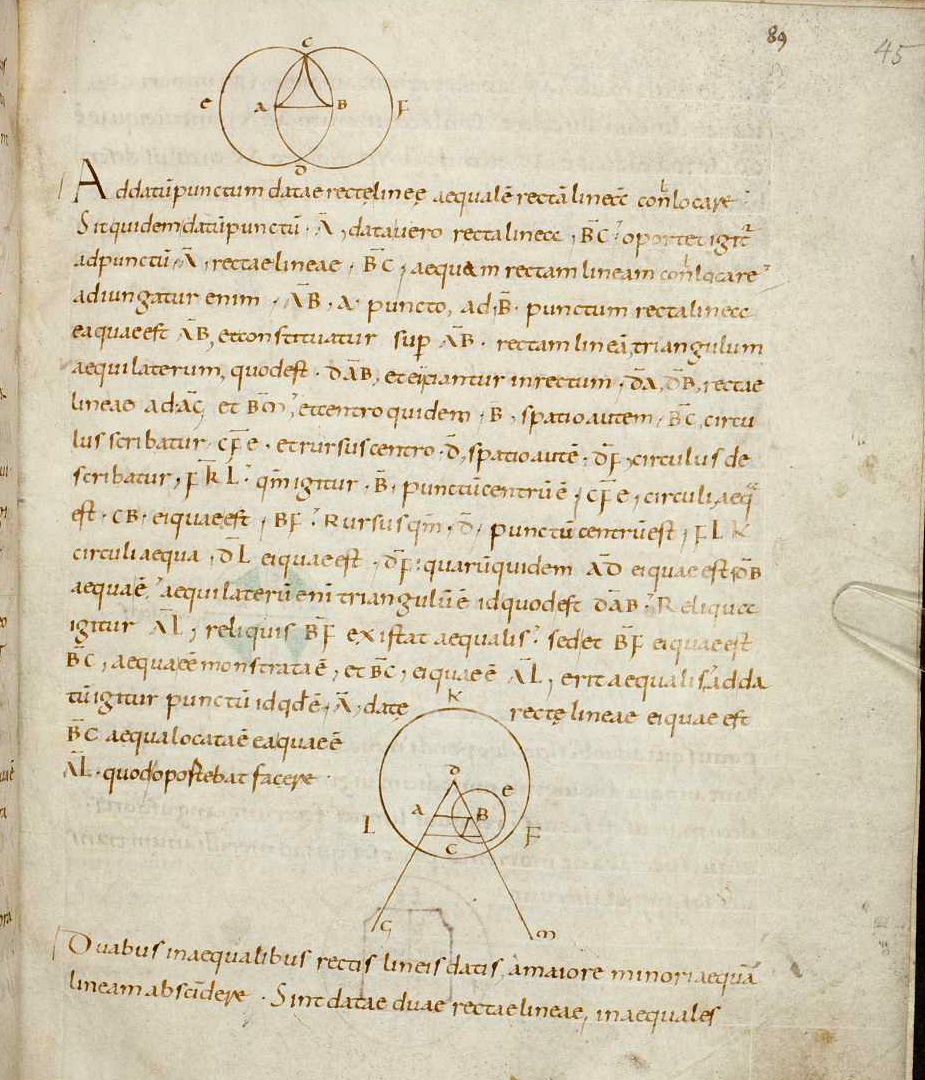 89
45
C
e A B F
D
Addatū punctum datae rectę lineę aequalē rectā lineā conlocare
Sit quidem datū punctū · Ā , data uero recta linea , B̄C̄ · oportet igit̄
ad punctū , Ā , rectae lineae , B̄C̄ , aequam rectam lineam conlocare
adiungatur enim · ĀB̄ · A puncto, ad · B̄ · punctum recta linea
ea quae est ĀB̄, et constituatur sup ĀB̄ · rectam lineā, triangulum
aequilaterum, quod est · D̄ĀB̄, et eiciantur in rectum · D̄A, D̄B̄, rectae
lineae ad AC, et BM, et centro quidem , B , spatio autem , B̄C̄, circu
lus scribatur, CF̄e · et rursus centro · D̄, spatio autē · D̄F̄, circulus de
scribatur, F̄K̄L̄ · qm̄ igitur · B̄ · punctū centrū ē , CF̄e , circuli, aeq
est · CB · ei quae est , BF · Rursus qm̄ , D̄ , punctū centrū est , FLK
circuli aequa , D̄L ei quae est · D̄F̄ : quarū quidem ĀD ei quae est , D̄B
aequaē, aequilaterū enī triangulū ē id quod est D̄ĀB̄ · Reliqua
igitur ĀL̄ , reliquis B̄F̄ existat aequalis · sed et B̄F̄ ei quae est
B̄C̄ , aequa eē monstrata ē , et B̄C̄ , ei quae ē ĀL̄ , erit aequalis, ad da
tū igitur punctū id qd̄ ē , Ā , datę rectę lineae ei quae est
B̄C aequa locata ē ea quae ē
ĀL · quod oportebat facere ·
K
D
e
A B
L F
C
G M
Duabus inaequalibus rectis lineis datis, a maiore minori aequā
lineam abscidere · Sint datae duae rectae lineae, inaequales